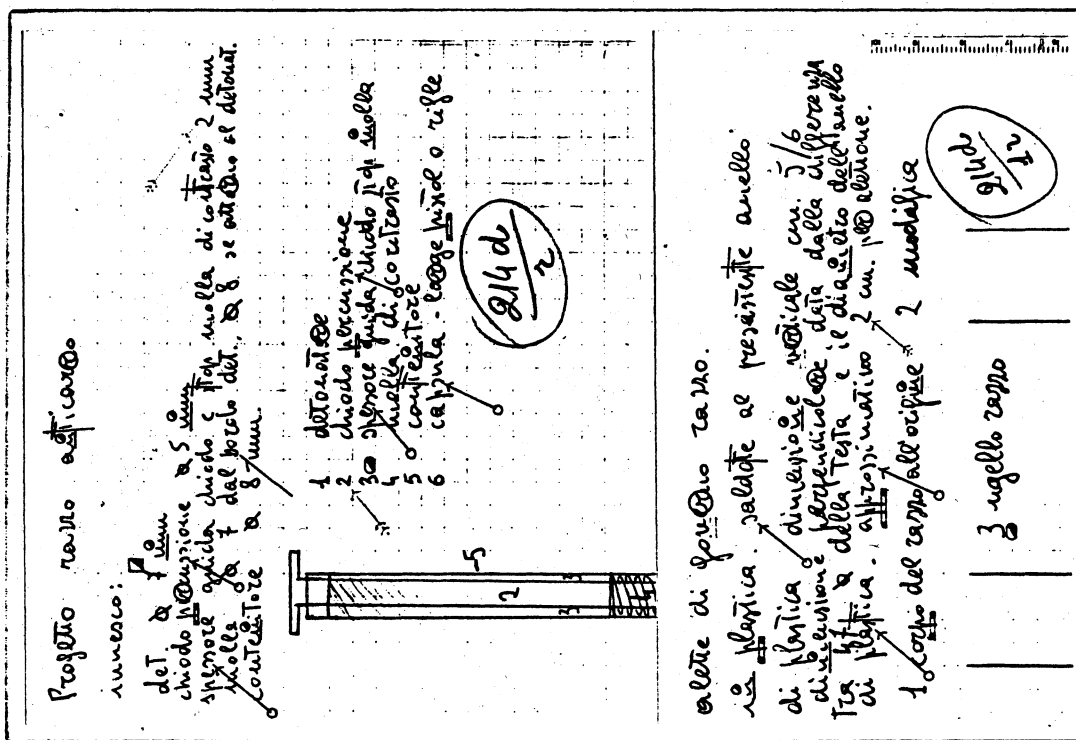 Progetto razzo anticarro
innesco:
det. ø 7 mm
chiodo percussione ø 5 mm
spessore guida chiodo e stop molla di contrasto 2 mm
molla ø 7 dal bordo det. ø 8 se attorno al detonat.
contenitore ø 8 mm.
1 detonatore
2 chiodo percussione
3 spessore guida chiodo stop molla
4 molla di contrasto
5 contenitore
6 capsula - large pistol o rifle
214d
r
2
3
3
5
alette di governo razzo.
in plastica. saldate al presistente anello
di plastica dimensione verticale cm. 5/6
dimensione perpendicolare data dalla differenza
tra ø della testa e il diametro dell'anello
di plastica. approssimativo 2 cm. per alettone.
1 corpo del razzo all'origine 2 modifica
3 ugello razzo
214d